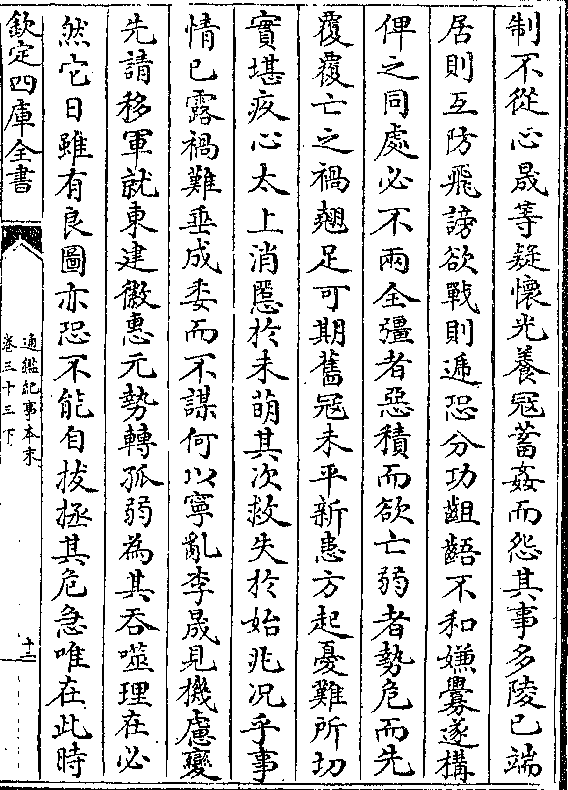 制不從心晟等疑懷光養宼蓄姦而怨其事多陵已端
居則互防飛謗欲戰則遞恐分功齟齬不和嫌釁遂構
俾之同處必不兩全彊者惡積而欲亡弱者勢危而先
覆覆亡之禍翹足可期舊宼未平新患方起憂難所切
實堪疚心太上消慝於未萌其次救失於始兆况乎事
情已露禍難垂成委而不謀何以寧亂李晟見機慮變
先請移軍就東建徽惠元勢轉孤弱為其吞噬理在必
然它日雖有良圖亦恐不能自拔拯其危急唯在此時
欽定四庫全書
通鑑紀事本末
卷三十三下
十二